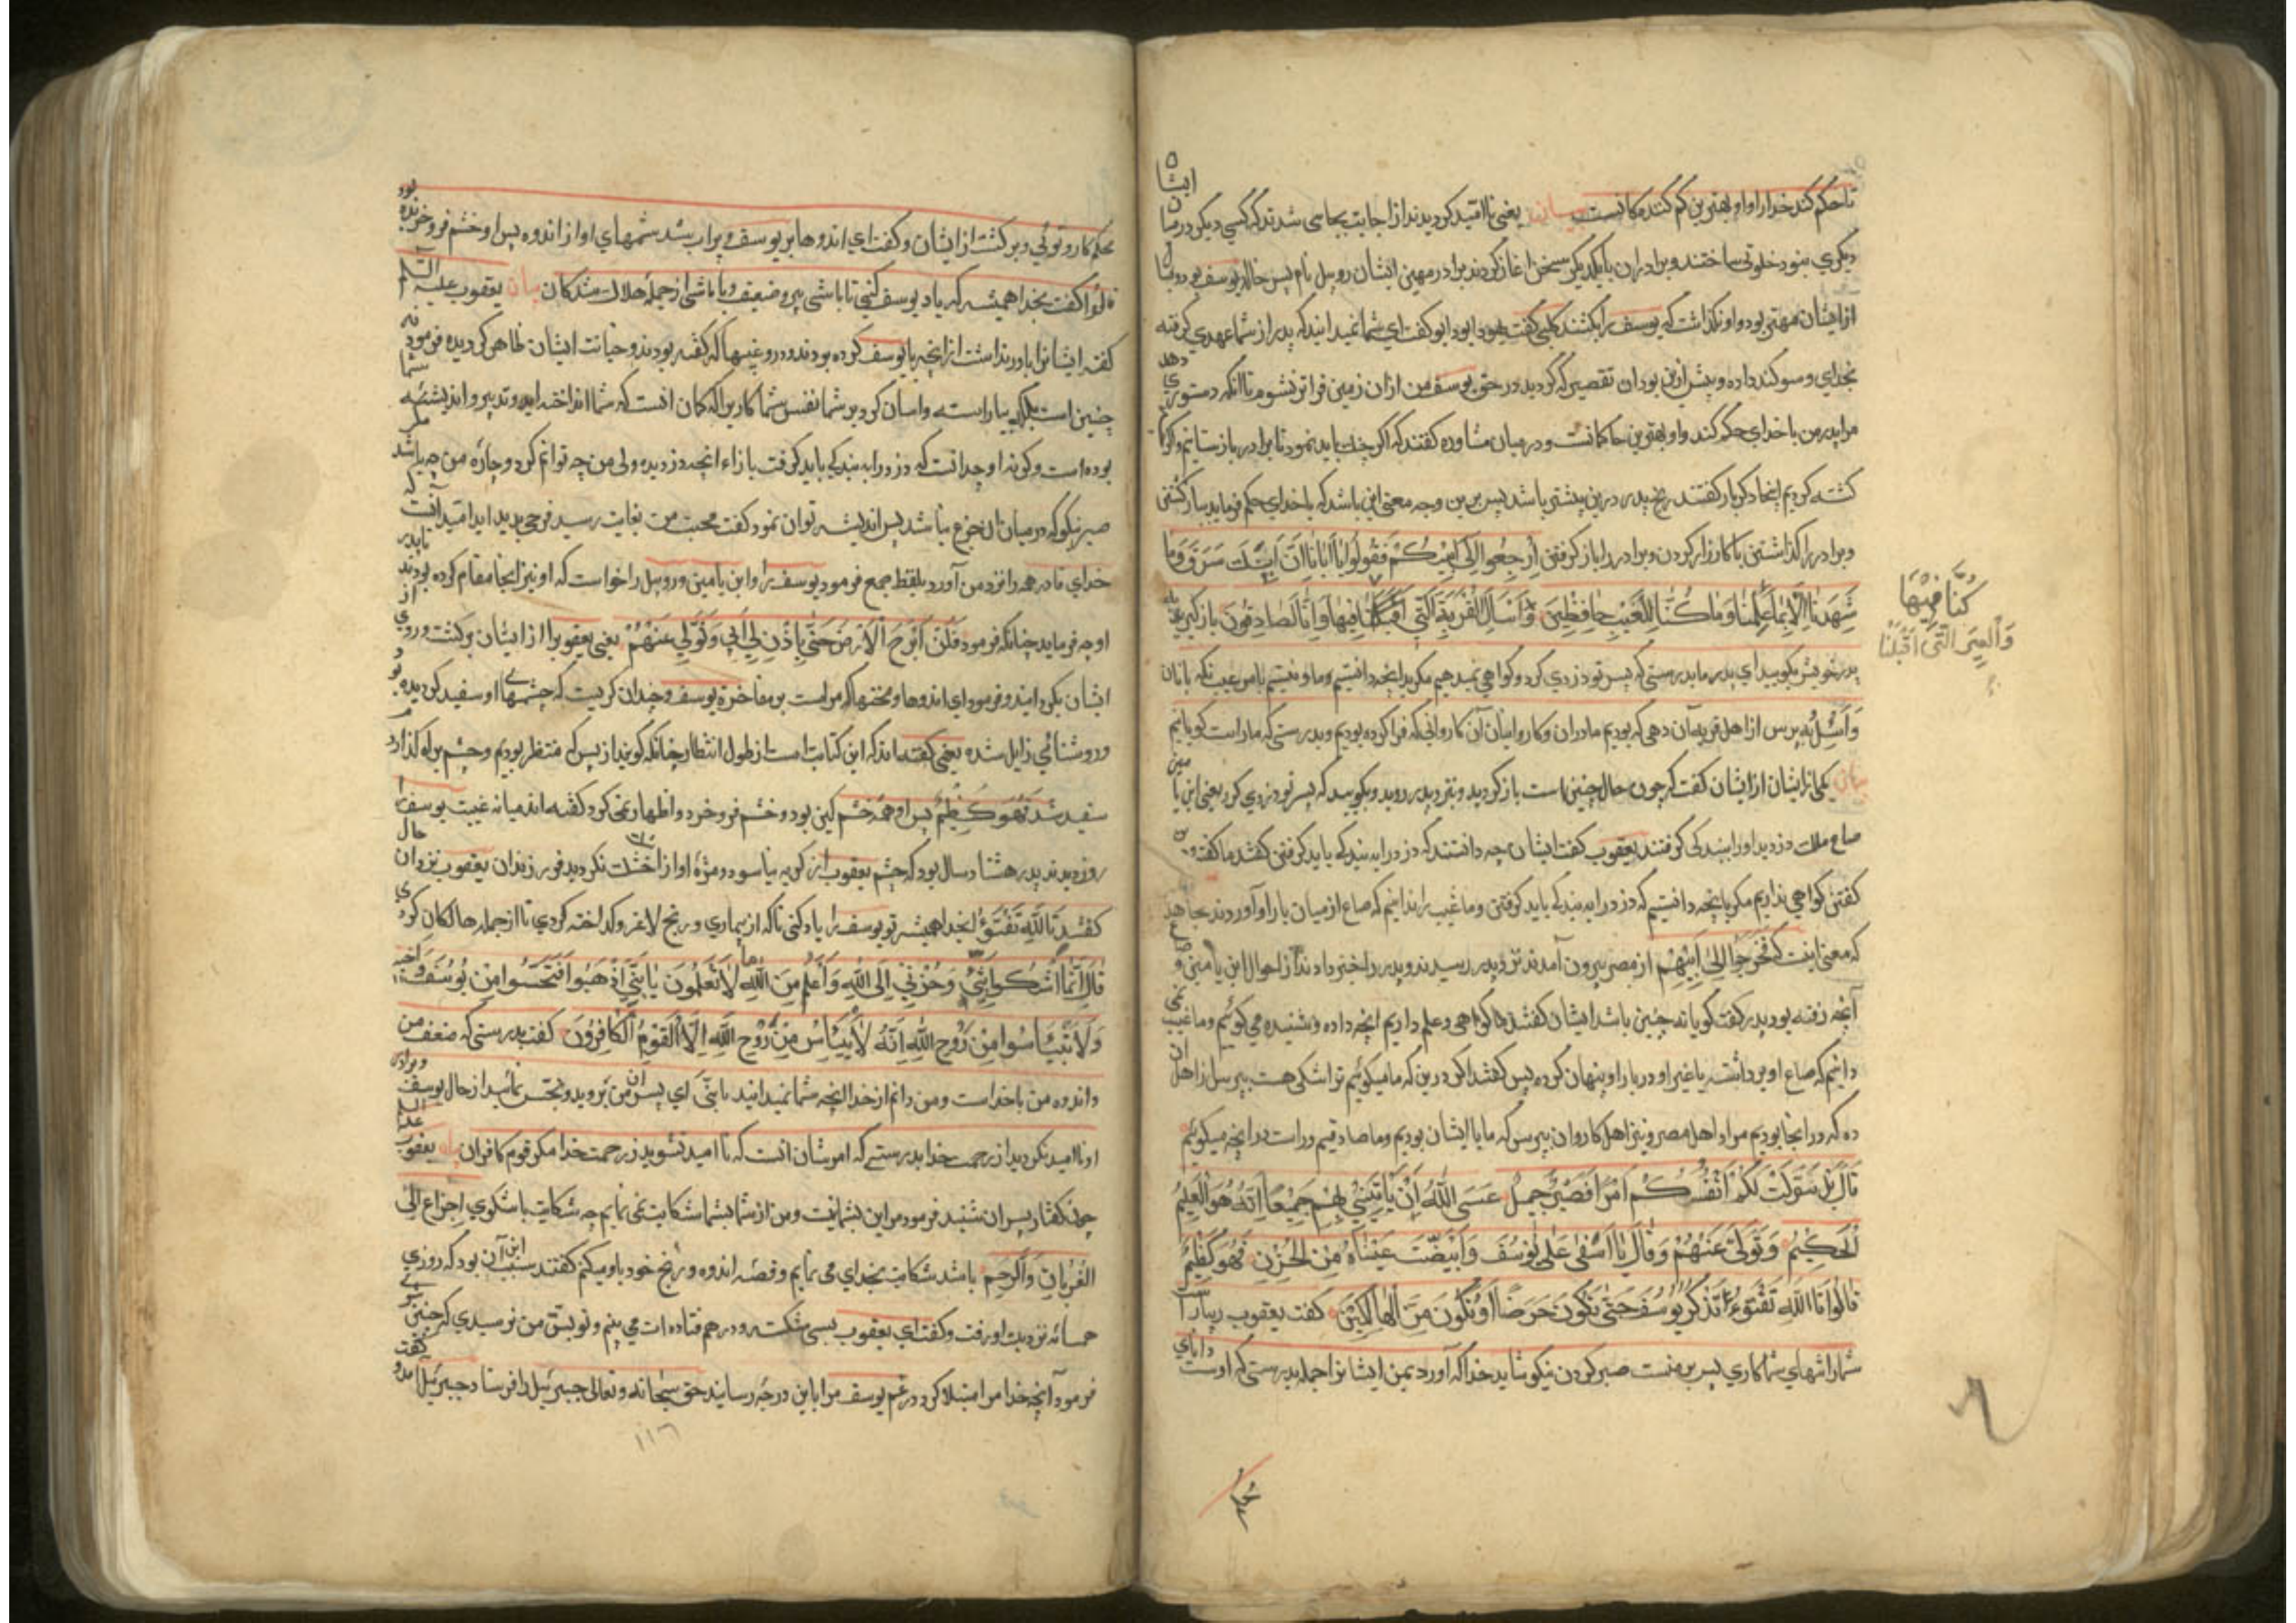 تا حکم کند خدا را و او بهترین حکم کنندکانست یعنی ناامید کردیدند از اجابت بجاهی شدند که کسی دیکر در میان ایشان
دیکری نبود خلوتی ساختند و برادران با یکدیکر سخن اغاز کردند برادر مهین ایشان روبیل نام پسر خاله یوسف بود و
از ایشان مهتر بود و او نکذاشت که یوسف را بکشند کلبی کفت یهودا بود او کفت ای شما نمیدانید که پدر از شما عهدی کرفته
بخدای و سوکند داده و پیش ازین بود ان تقصیر که کردید در حق یوسف من ازان زمین فراتر نشوم تا انکه دستوری دهد
مرا پدر من یا خدای حکم کند و او بهترین حاکمانست و در میان مشاوره کفتند که اکر جنک باید نمود تا برادر باز ستانیم
کشته کردیم اینجا دکربار کفتند رنج پدر درین بیشتر باشد پس برین وجه معنی این باشد که یا خدای حکم فرماید بباز کشتن
و برادر را کذاشتن یا کارزار کردن و برادر را باز کرفتن اِرْجِعُوا اِلٰی اَبِیْکُمْ فَقُولُوا یٰا اَبٰانٰا اِنَّ ابْنَکَ سَرَقَ وَمٰا
شَهِدْنٰا اِلّٰا بِمٰا عَلِمْنٰا وَمٰا کُنّٰا لِلْغَیْبِ حٰافِظِیْنَ وَاسْاَلِ الْقَرْیَةَ الَّتِی فِیهٰا وَاِنّٰا لَصٰادِقُونَ باز کردید
کُنَّا فِیْهَا
وَالْعِیرَ الَّتِی اَقْبَلْنَا
پدر خویش بکویید ای پدر ما بدرستی که پسر تو دزدی کرد و کواهی نمیدهیم مکر بدانچه دانستیم و ما نیستیم بامر غیب نکه بانان
وَاسْئَلْ بپرس از اهل قریه آن دهی که بودیم ما دران و کاروانیان آن کاروانی که فرا کرده بودیم و بدرستی که ما راست کویانیم
بیان یکی از ایشان از ایشان کفت که چون حال چنین است باز کردید و نزد پدر روید و بکویید که پسر تو دزدی کرد یعنی ابن یامین
صاع ملک دزدید او را ببندکی کرفتند یعقوب کفت ایشان چه دانستند که دزد را به بندکی باید کرفتن کفتند ما کفتیم
کفتن کواهی نداریم مکر بانچه دانستیم که دزد را به بندکی باید کرفتن و ما غیب را ندانیم که صاع از میان بار او آوردند مجاهد
که معنی اینست که فَخَرَجُوا اِلٰی اَبِیْهِمْ از مصر بیرون آمدند نزد پدر رسیدند و پدر را خبر دادند از احوال ابن یامین و صاع
آنچه رفته بود پدر کفت کویا نه چنین باشد ایشان کفتند ما کواهی و علم داریم انچه داده و شنیده می کوئیم و ما غیب نمی
دانیم که صاع او برداشته یا غیر او در بار او پنهان کرده پس کفتند اکر درین که ما میکوئیم ترا شکی هست بپرس از اهل ان
ده که در انجا بودیم مراد اهل مصر و نیز اهل کاروان بپرس که ما با ایشان بودیم و ما صادقیم و راست در انچه میکوئیم
قٰالَ بَلْ سَوَّلَتْ لَکُمْ اَنْفُسُکُمْ اَمْرًا فَصَبْرٌ جَمِیْلٌ عَسَی اللّٰهُ اَنْ یَأْتِیَنِی بِهِمْ جَمِیْعًا اِنَّهُ هُوَ الْعَلِیْمُ
الْحَکِیْمُ وَتَوَلّٰی عَنْهُمْ وَقٰالَ یٰا اَسَفٰی عَلٰی یُوْسُفَ وَابْیَضَّتْ عَیْنٰاهُ مِنَ الْحُزْنِ فَهُوَ کَظِیْمٌ
قٰالُوا تَاللّٰهِ تَفْتَؤُا تَذْکُرُ یُوسُفَ حَتّٰی تَکُونَ حَرَضًا اَوْ تَکُونَ مِنَ الْهٰالِکِیْنَ کفت یعقوب بیاراست
شما را تنهای شما کاری پس بر منست صبر کردن نیکو شاید خدا که آورد بمن ایشانرا جمله بدرستی که اوست دانای
محکم کار و توئی و برکشت از ایشان و کفت ای اندوها بر یوسف و پر اب شد چشمهای او از اندوه پس او خشم فرو خورنده بود
قالوا کفت بخدا همیشه که یاد یوسف کنی تا باشی پیر و ضعیف و یا باشی از جمله هلاک شدکان بیان یعقوب علیه السلام
کفته ایشانرا باور نداشت از انچه با یوسف کرده بودند و دروغیها که کفته بودند و خیانت ایشان ظاهر کردیده فرمود نه
چنین است بلکه بیاراسته و اسان کرد بر شما نفس شما کاری را که کان انست که شما انداخته اید و تدبیر و اندیشه شما
بوده است و کرنه او چه دانست که دزد را به بندکی باید کرفت بازاء انچه دزدیده ولی من چه توانم کرد و چاره من چه باشد مکر
صبر نیکو که در میان ان جزع نباشد پس اندیشه توان نمود کفت محنت من بغایت رسید فرجی پدید اید امید انست که
خدای تا در همه را نزد من آورد بلفظ جمع فرمود یوسف را و ابن یامین و روبیل را خواست که او نیز انجا مقام کرده بودند تا پدر
او چه فرماید چنانکه فرمود فَلَنْ اَبْرَحَ الْاَرْضَ حَتّٰی یَأْذَنَ لِی اَبِی وَتَوَلّٰی عَنْهُمْ یعنی یعقوب را از ایشان برکشت و روی از
ایشان بکردانید و فرمود ای اندوها و محنتها که مراست بر مفاخرة یوسف و چندان کریست که چشمهای او سفید کردیده بود
و روشنائی زایل شده یعنی کفته اند که این کنایت است از طول انتظار چنانکه کویند از پس که منتظر بودیم و چشم براه کذارد
سفید شد فَهُوَ کَظِیْمٌ پس او همه خشم کین بود و خشم فرو خورد و اظهار نمی کرد کفته اند میانه غیبت یوسف
روز دیدند پدر هشتاد سال بود که چشم یعقوب از کریه نیاسود و مژه او از اشک خشک نکردید فرزندان یعقوب نزد ان حال
کفتند تَاللّٰهِ تَفْتَؤُا بخدا همیشه تو یوسف را یاد کنی تا که از بیماری و رنج لاغر و کداخته کردی تا از جمله هالکان کردی
قٰالَ اِنَّمٰا اَشْکُوا بَثِّی وَحُزْنِی اِلَی اللّٰهِ وَاَعْلَمُ مِنَ اللّٰهِ مٰا لٰا تَعْلَمُونَ یٰا بَنِیَّ اذْهَبُوا فَتَحَسَّسُوا مِنْ یُوسُفَ وَاَخِیهِ
وَلٰا تَیْاَسُوا مِنْ رَوْحِ اللّٰهِ اِنَّهُ لٰا یَیْاَسُ مِنْ رَوْحِ اللّٰهِ اِلَّا الْقَوْمُ الْکٰافِرُونَ کفت بدرستی که ضعف من
و اندوه من با خداست و من دانم از خدا انچه شما نمیدانید یا بنیّ ای پسران من بروید و تجسس نمائید از حال یوسف و برادر
او ناامید نکردید از رحمت خدا بدرستی که امر شان انست که نا امید نشوید ز رحمت خدا مکر قوم کافران بیان یعقوب علیه السلام
چون کفتار پسران شنید فرمود مر این بشما نیست و من از شما بشما شکایت نمی نمایم چه شکایت با شکوی
باشد شکایت بخدای می نمایم و قصه اندوه و رنج خود باو میکنم کفتند سبب این آن بود که روزی
همسایه نزدیت او رفت و کفت ای یعقوب بسی شکسته و درهم فتاده ات می بینم و تو بسنّ من نرسیدی که چنین
فرمود آنچه خدا مرا مبتلا کرد در غم یوسف مرا باین درجه رسانید حق سبحانه و تعالی جبرئیل را فرستاد جبرئیل آمد و کفت
١١٦